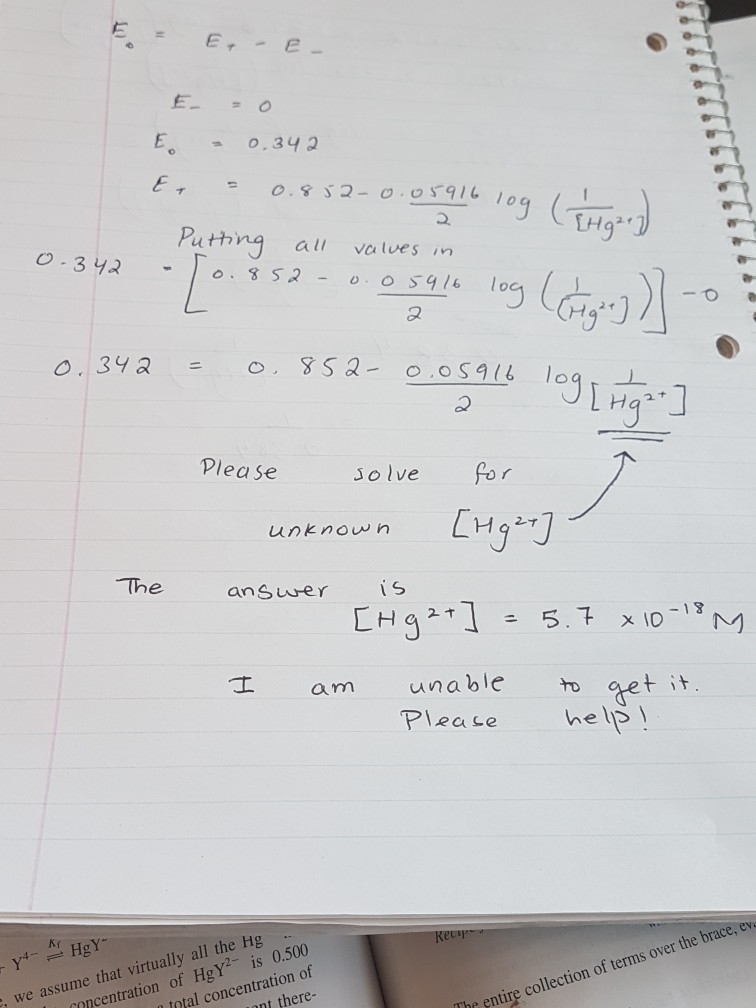 E₀ = E₊ - E₋
E₋ = 0
E₀ = 0.342
E₊ = 0.852 - 0.05916/2 log (1/[Hg²⁺])
Putting all values in
0.342 = [0.852 - 0.05916/2 log (1/[Hg²⁺])] - 0
0.342 = 0.852 - 0.05916/2 log [1/Hg²⁺]
Please solve for
unknown [Hg²⁺]
The answer is
[Hg²⁺] = 5.7 × 10⁻¹⁸ M
I am unable to get it.
Please help!
Y⁴⁻ Kf ⇌ HgY
, we assume that virtually all the Hg
concentration of HgY²⁻ is 0.500
total concentration of
there-
The entire collection of terms over the brace,